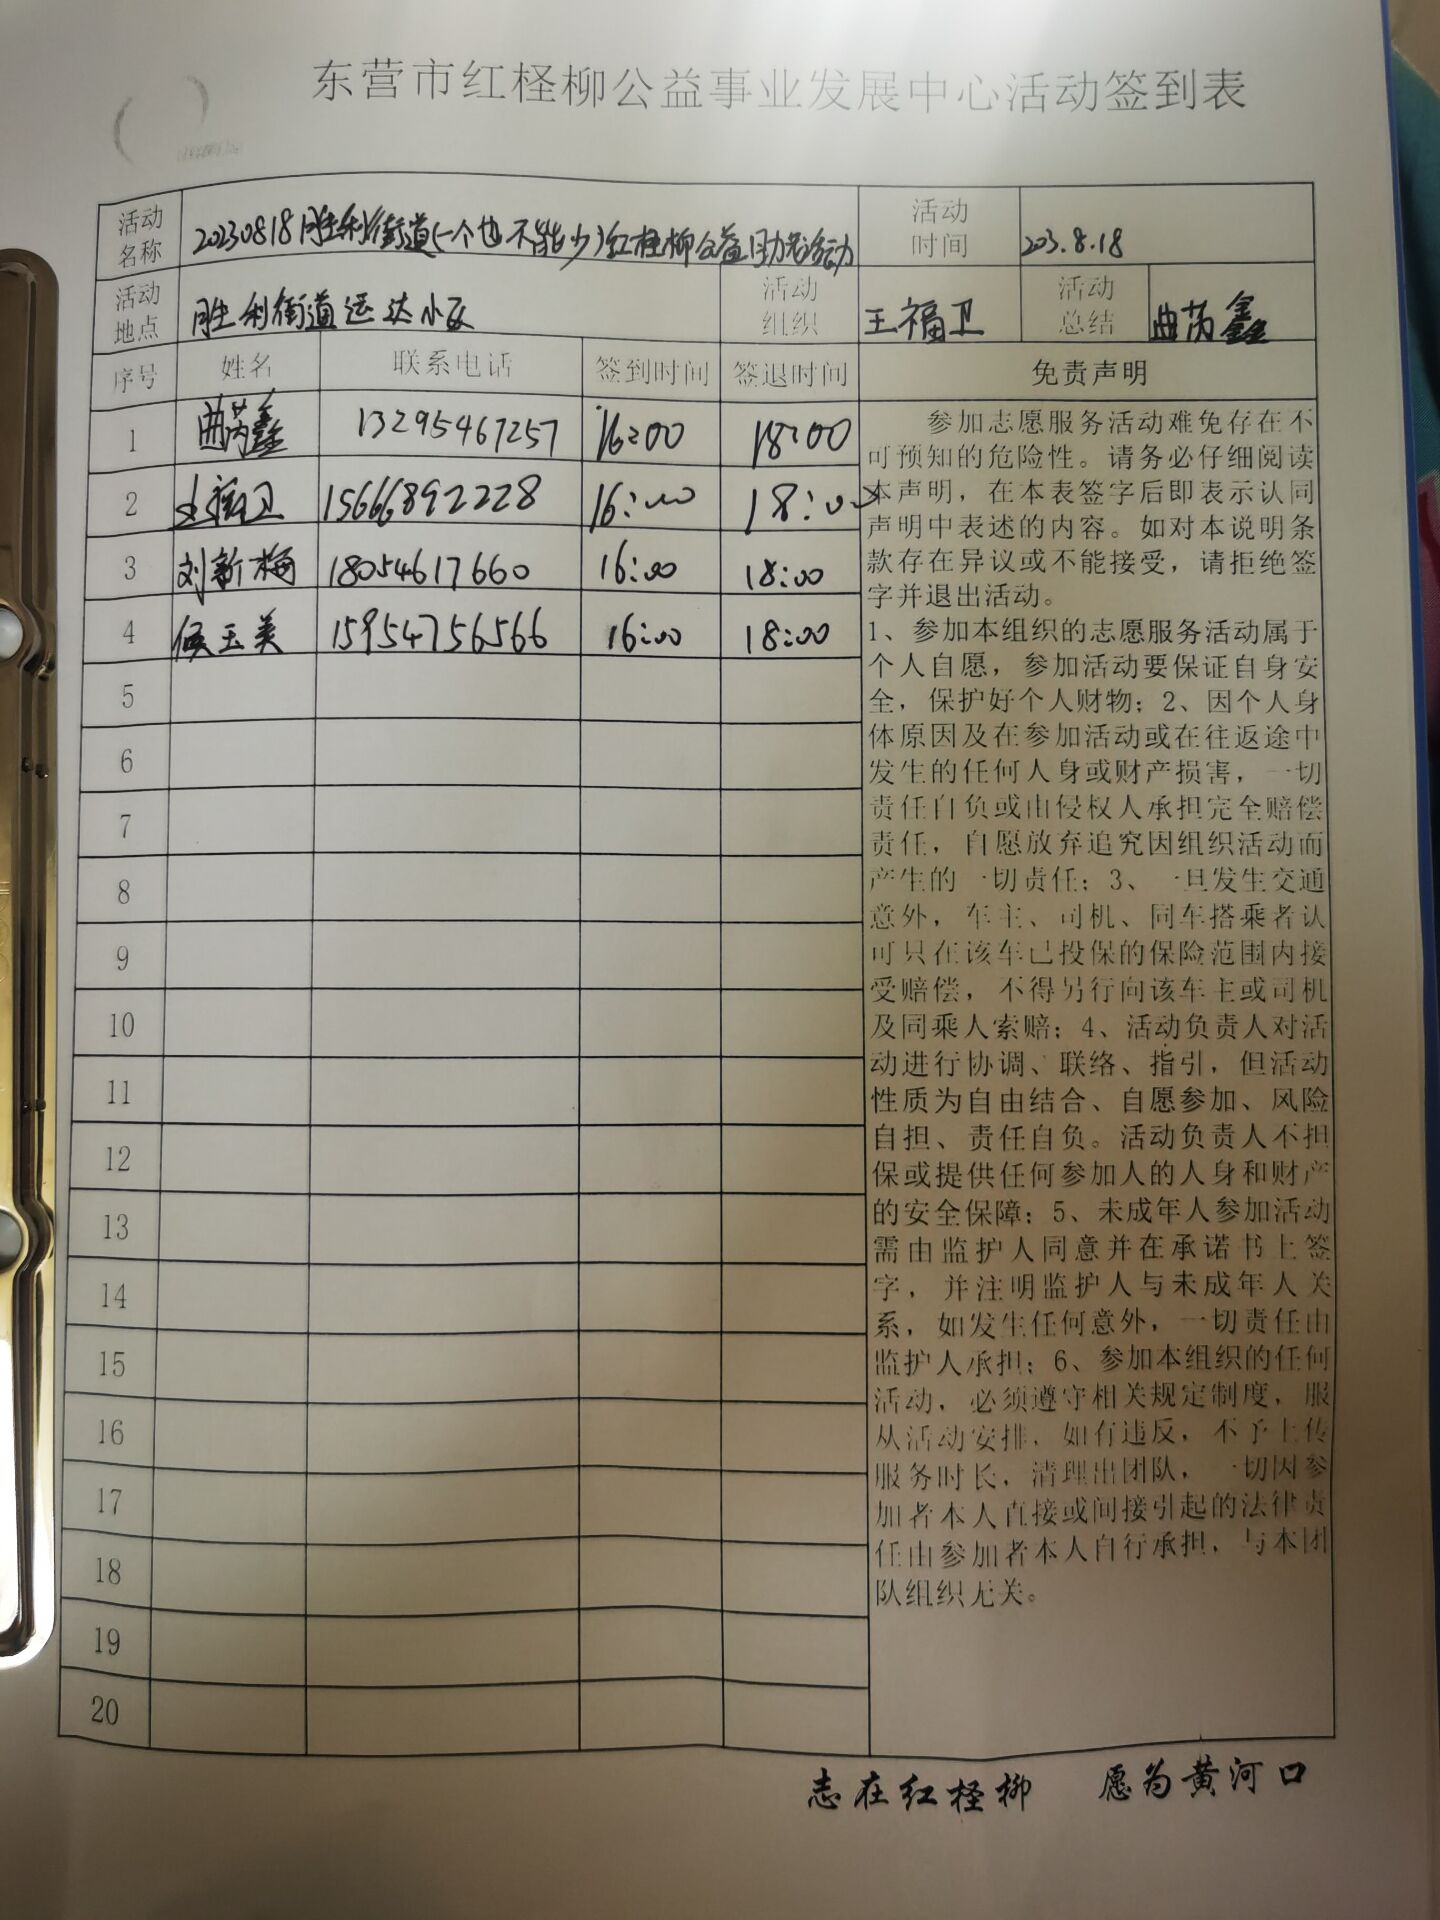 东营市红柽柳公益事业发展中心活动签到表
活动名称 20230818胜利街道(一个也不能少)红柽柳公益助老活动 活动时间 203.8.18
活动地点 胜利街道运达小区 活动组织 王福卫 活动总结 曲芮鑫
序号 姓名 联系电话 签到时间 签退时间 免责声明
1 曲芮鑫 13295467257 16:00 18:00
2 王福卫 15666892228 16:00 18:00
3 刘新梅 18054617660 16:00 18:00
4 候玉美 15954756566 16:00 18:00
5
6
7
8
9
10
11
12
13
14
15
16
17
18
19
20
参加志愿服务活动难免存在不
可预知的危险性。请务必仔细阅读
本声明，在本表签字后即表示认同
声明中表述的内容。如对本说明条
款存在异议或不能接受，请拒绝签
字并退出活动。
1、参加本组织的志愿服务活动属于
个人自愿，参加活动要保证自身安
全，保护好个人财物；2、因个人身
体原因及在参加活动或在往返途中
发生的任何人身或财产损害，一切
责任自负或由侵权人承担完全赔偿
责任，自愿放弃追究因组织活动而
产生的一切责任；3、一旦发生交通
意外，车主、司机、同车搭乘者认
可只在该车已投保的保险范围内接
受赔偿，不得另行向该车主或司机
及同乘人索赔；4、活动负责人对活
动进行协调、联络、指引，但活动
性质为自由结合、自愿参加、风险
自担、责任自负。活动负责人不担
保或提供任何参加人的人身和财产
的安全保障；5、未成年人参加活动
需由监护人同意并在承诺书上签
字，并注明监护人与未成年人关
系，如发生任何意外，一切责任由
监护人承担；6、参加本组织的任何
活动，必须遵守相关规定制度，服
从活动安排，如有违反，不予上传
服务时长，清理出团队，一切因参
加者本人直接或间接引起的法律责
任由参加者本人自行承担，与本团
队组织无关。
志在红柽柳 愿为黄河口